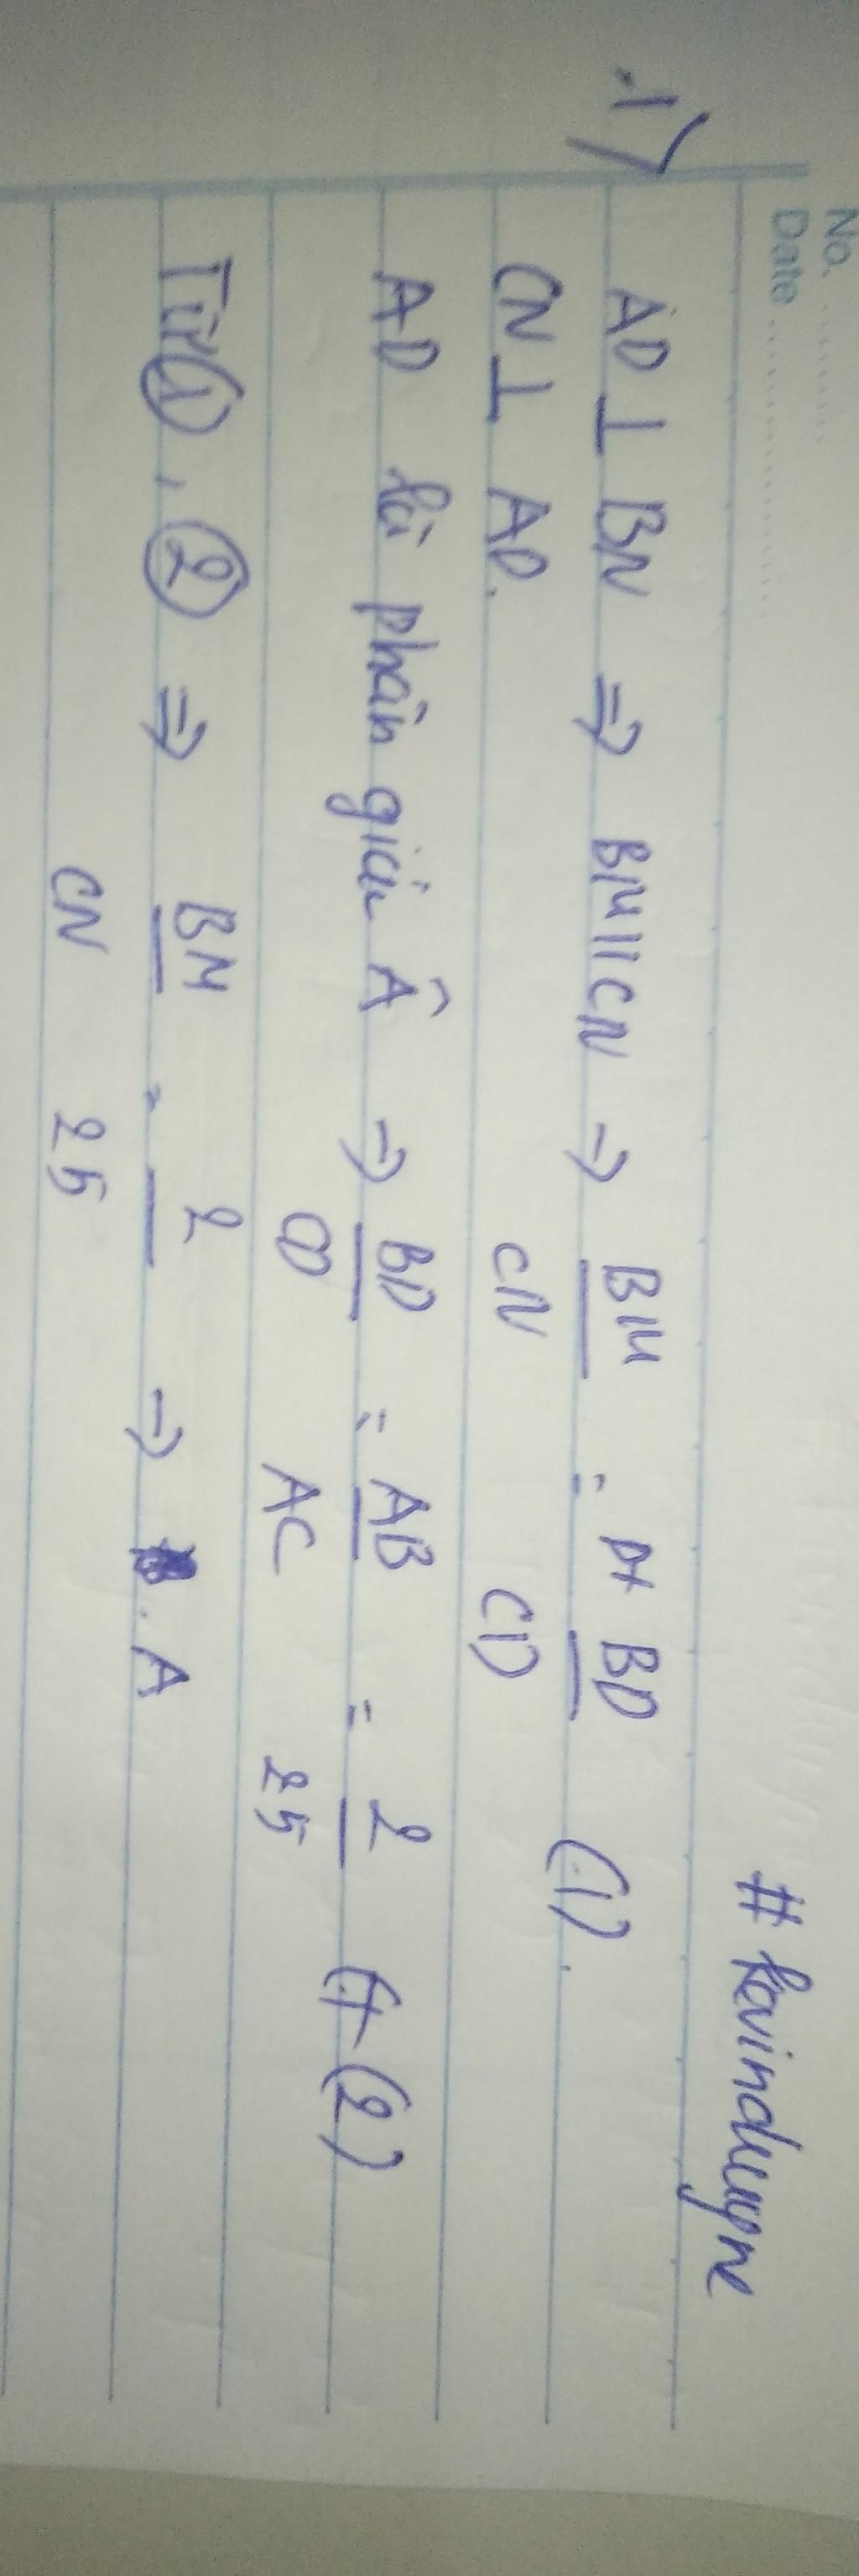 No. ........
Date ....................
# kevinduyne
1) AD ⊥ BN ⇒ BM // CN → BM/CN = BD/CD (1).
CN ⊥ AD.
AD là phân giác Â → BD/CD = AB/AC = 2/25 (2)
Từ (1), (2) ⇒ BM/CN = 2/25 → A